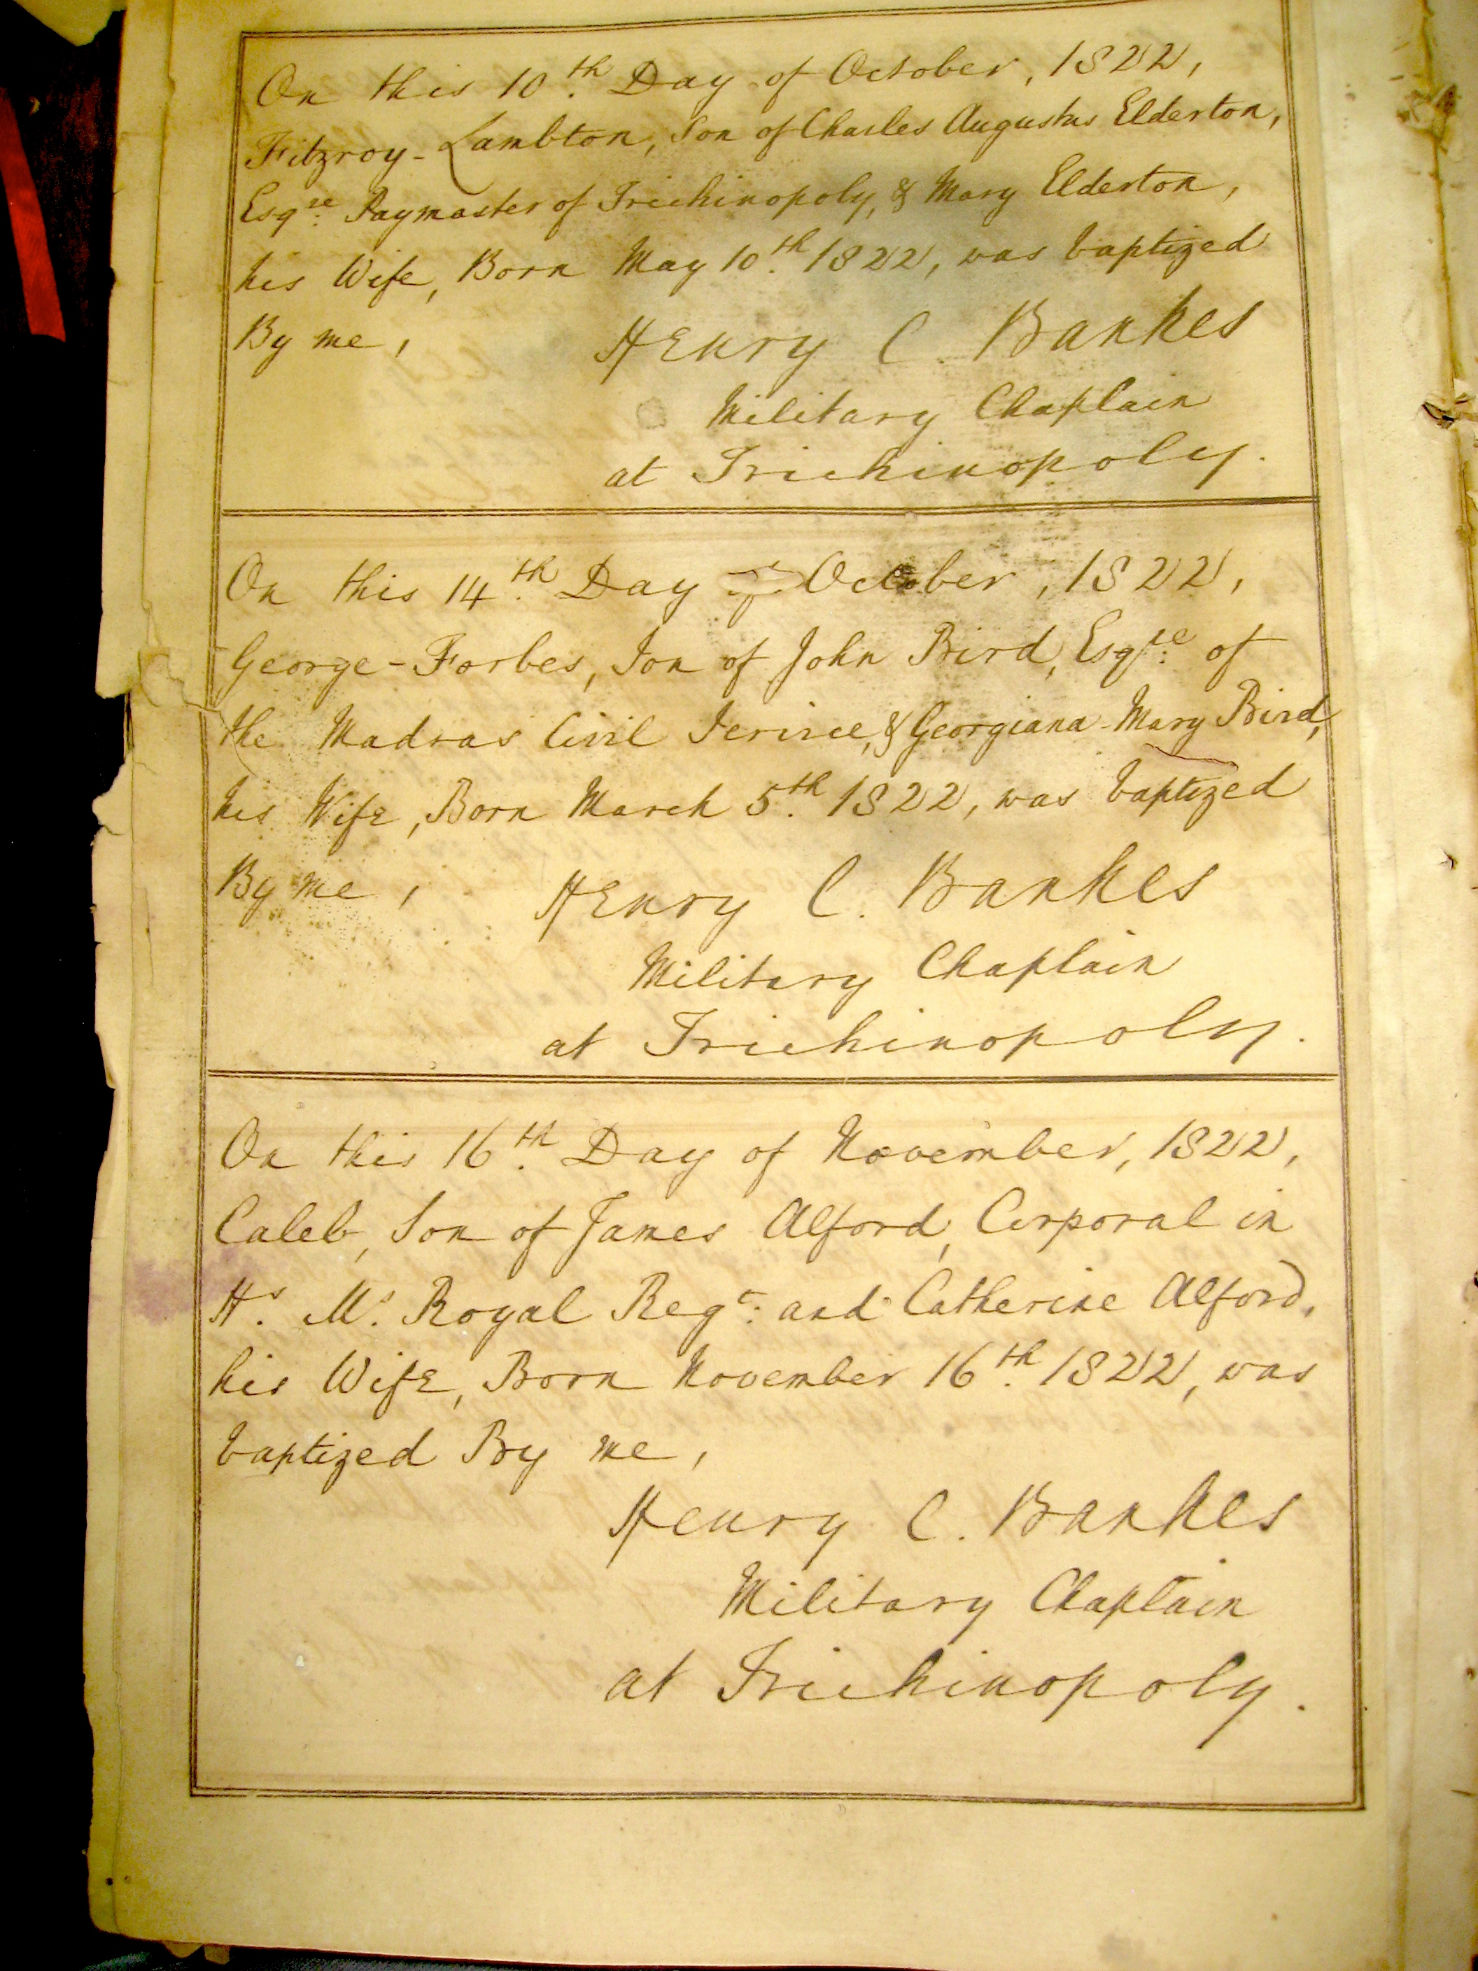 On this 10th. Day of October, 1822,
Fitzroy-Lambton, Son of Charles Augustus Elderton,
Esqre. Paymaster of Trichinopoly, & Mary Elderton,
his Wife, Born May 10th. 1822, was baptized
By me,
Henry C Bankes
Military Chaplain
at Trichinopoly.
On this 14th. Day of October, 1822,
George-Forbes, Son of John Bird, Esqre. of
the Madras Civil Service, & Georgiana-Mary Bird,
his Wife, Born March 5th. 1822, was baptized
By me,
Henry C. Bankes
Military Chaplain
at Trichinopoly.
On this 16th. Day of November, 1822,
Caleb, Son of James Alford, Corporal in
Hs. Ms. Royal Regt: and Catherine Alford,
his Wife, Born November 16th. 1822, was
baptized By me,
Henry C. Bankes
Military Chaplain
at Trichinopoly.